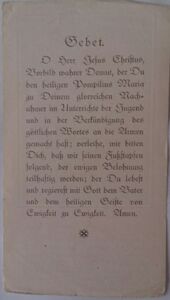 Gebet.
O Herr Jesus Christus,
Vorbild wahrer Demut, der Du
den heiligen Pompilius Maria
zu Deinem glorreichen Nach-
ahmer im Unterrichte der Jugend
und in der Verkündigung des
göttlichen Wortes an die Armen
gemacht hast; verleihe, wir bitten
Dich, daß wir seinen Fußstapfen
folgend, der ewigen Belohnung
teilhaftig werden; der Du lebest
und regierest mit Gott dem Vater
und dem heiligen Geiste von
Ewigkeit zu Ewigkeit. Amen.